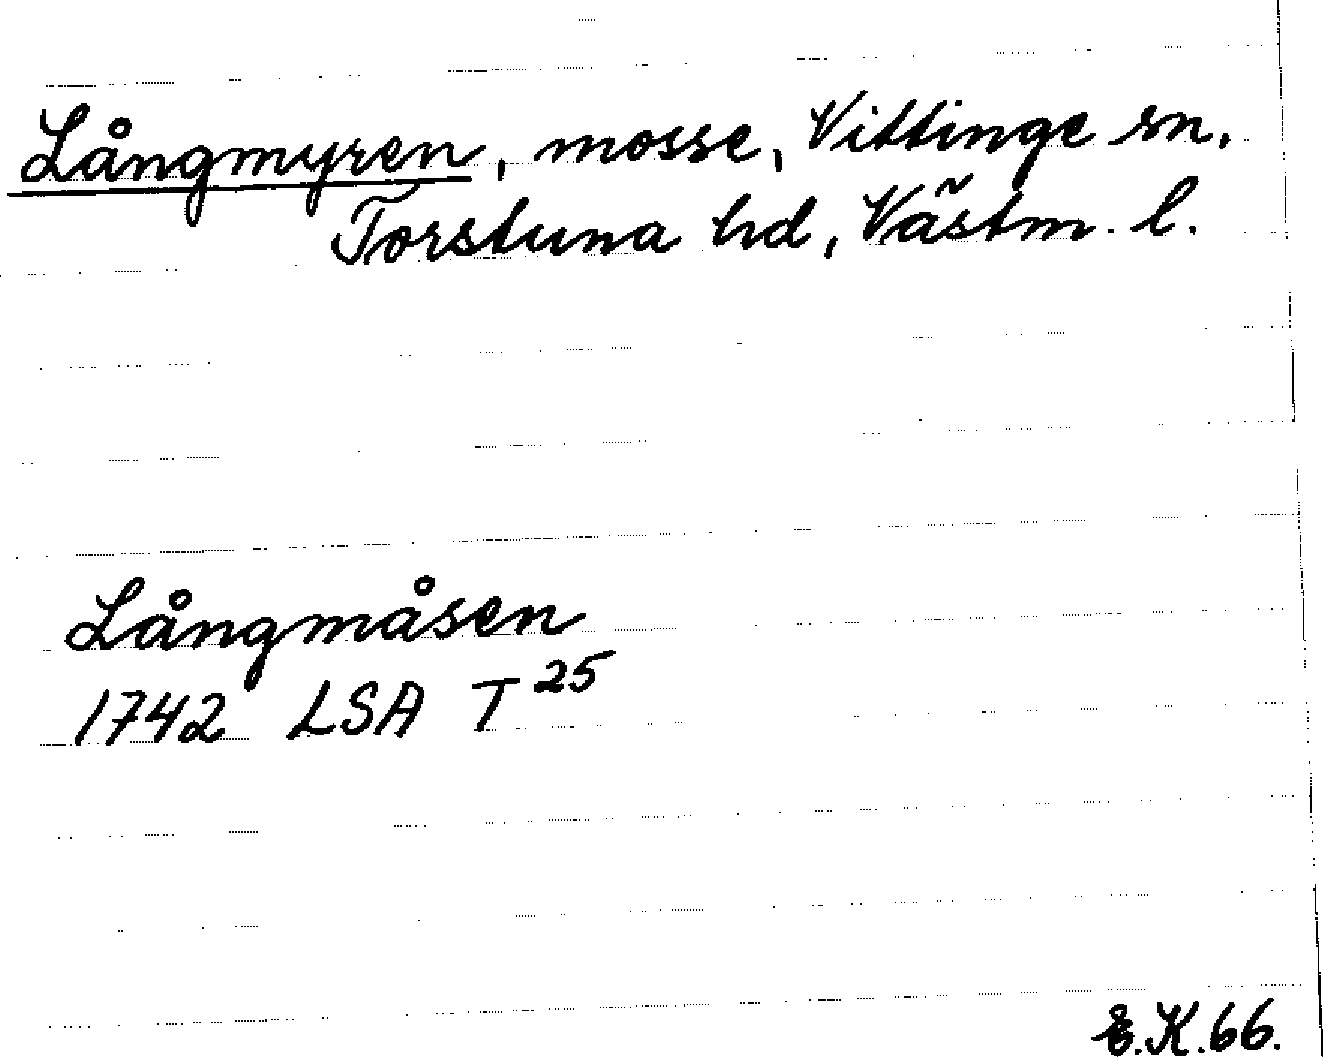 Långmyren, mosse, Vittinge sn.
Torstuna hd, Västm. l.
Långmåsen
1742 LSA T 25
E.K.66.